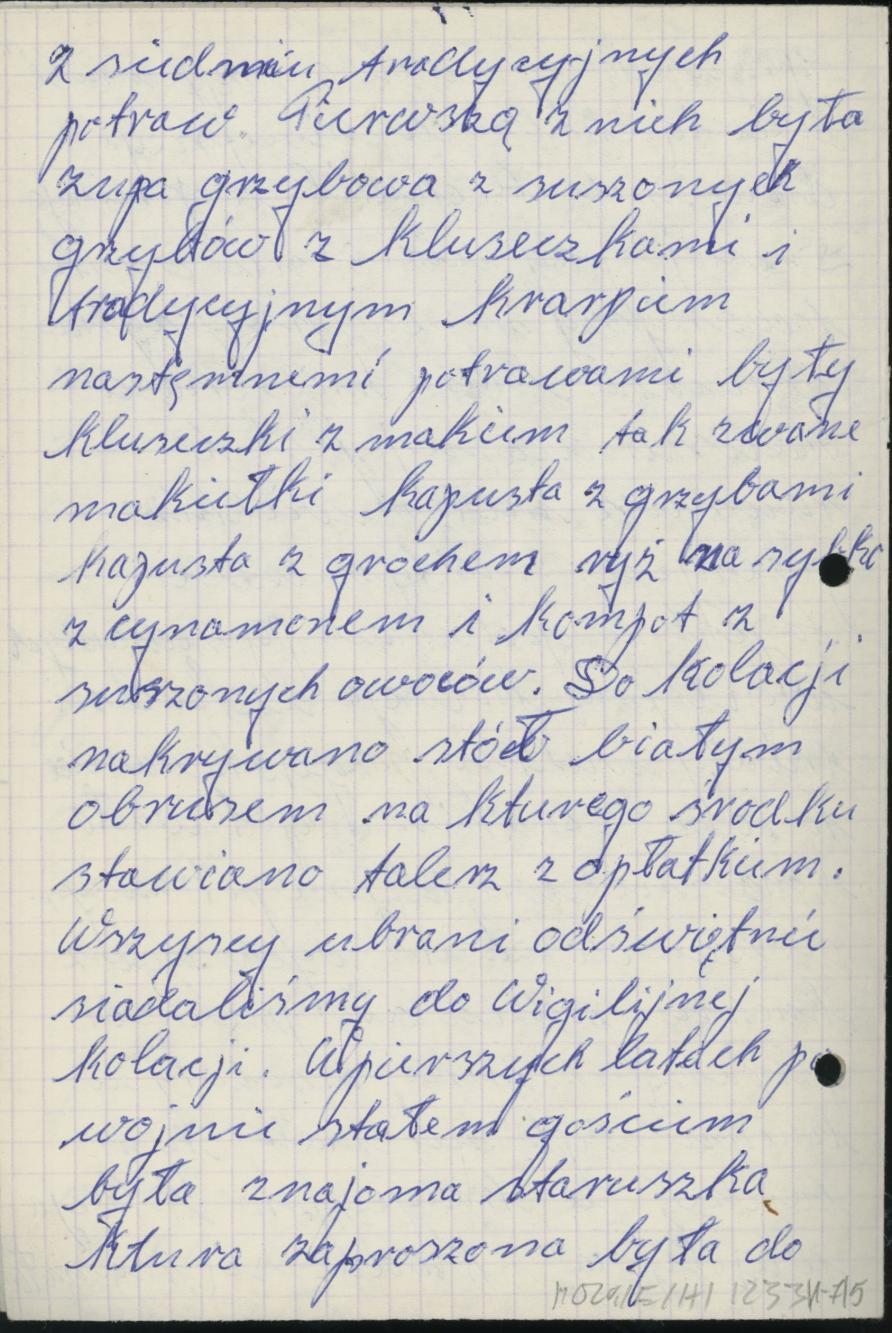 z siedmiu tradycyjnych
potraw. Pierwszą z nich była
zupa grzybowa z suszonych
grzybów z kluseczkami i
tradycyjnym krarpiem
nastęmnemi potrawami były
kluseczki z makiem tak zwane
makiełki kapusta z grzybami
kapusta z grochem ryż na sypko
z cynamonem i kompot z
suszonych owoców. Do kolacji
nakrywano stół białym
obrusem na kturego środku
stawiano talerz z opłatkiem.
Wszyscy ubrani odświętnie
siadaliśmy do Wigilijnej
kolacji. W pierszych latach po
wojnie stałem gościem
była znajoma staruszka
ktura zaproszona była do